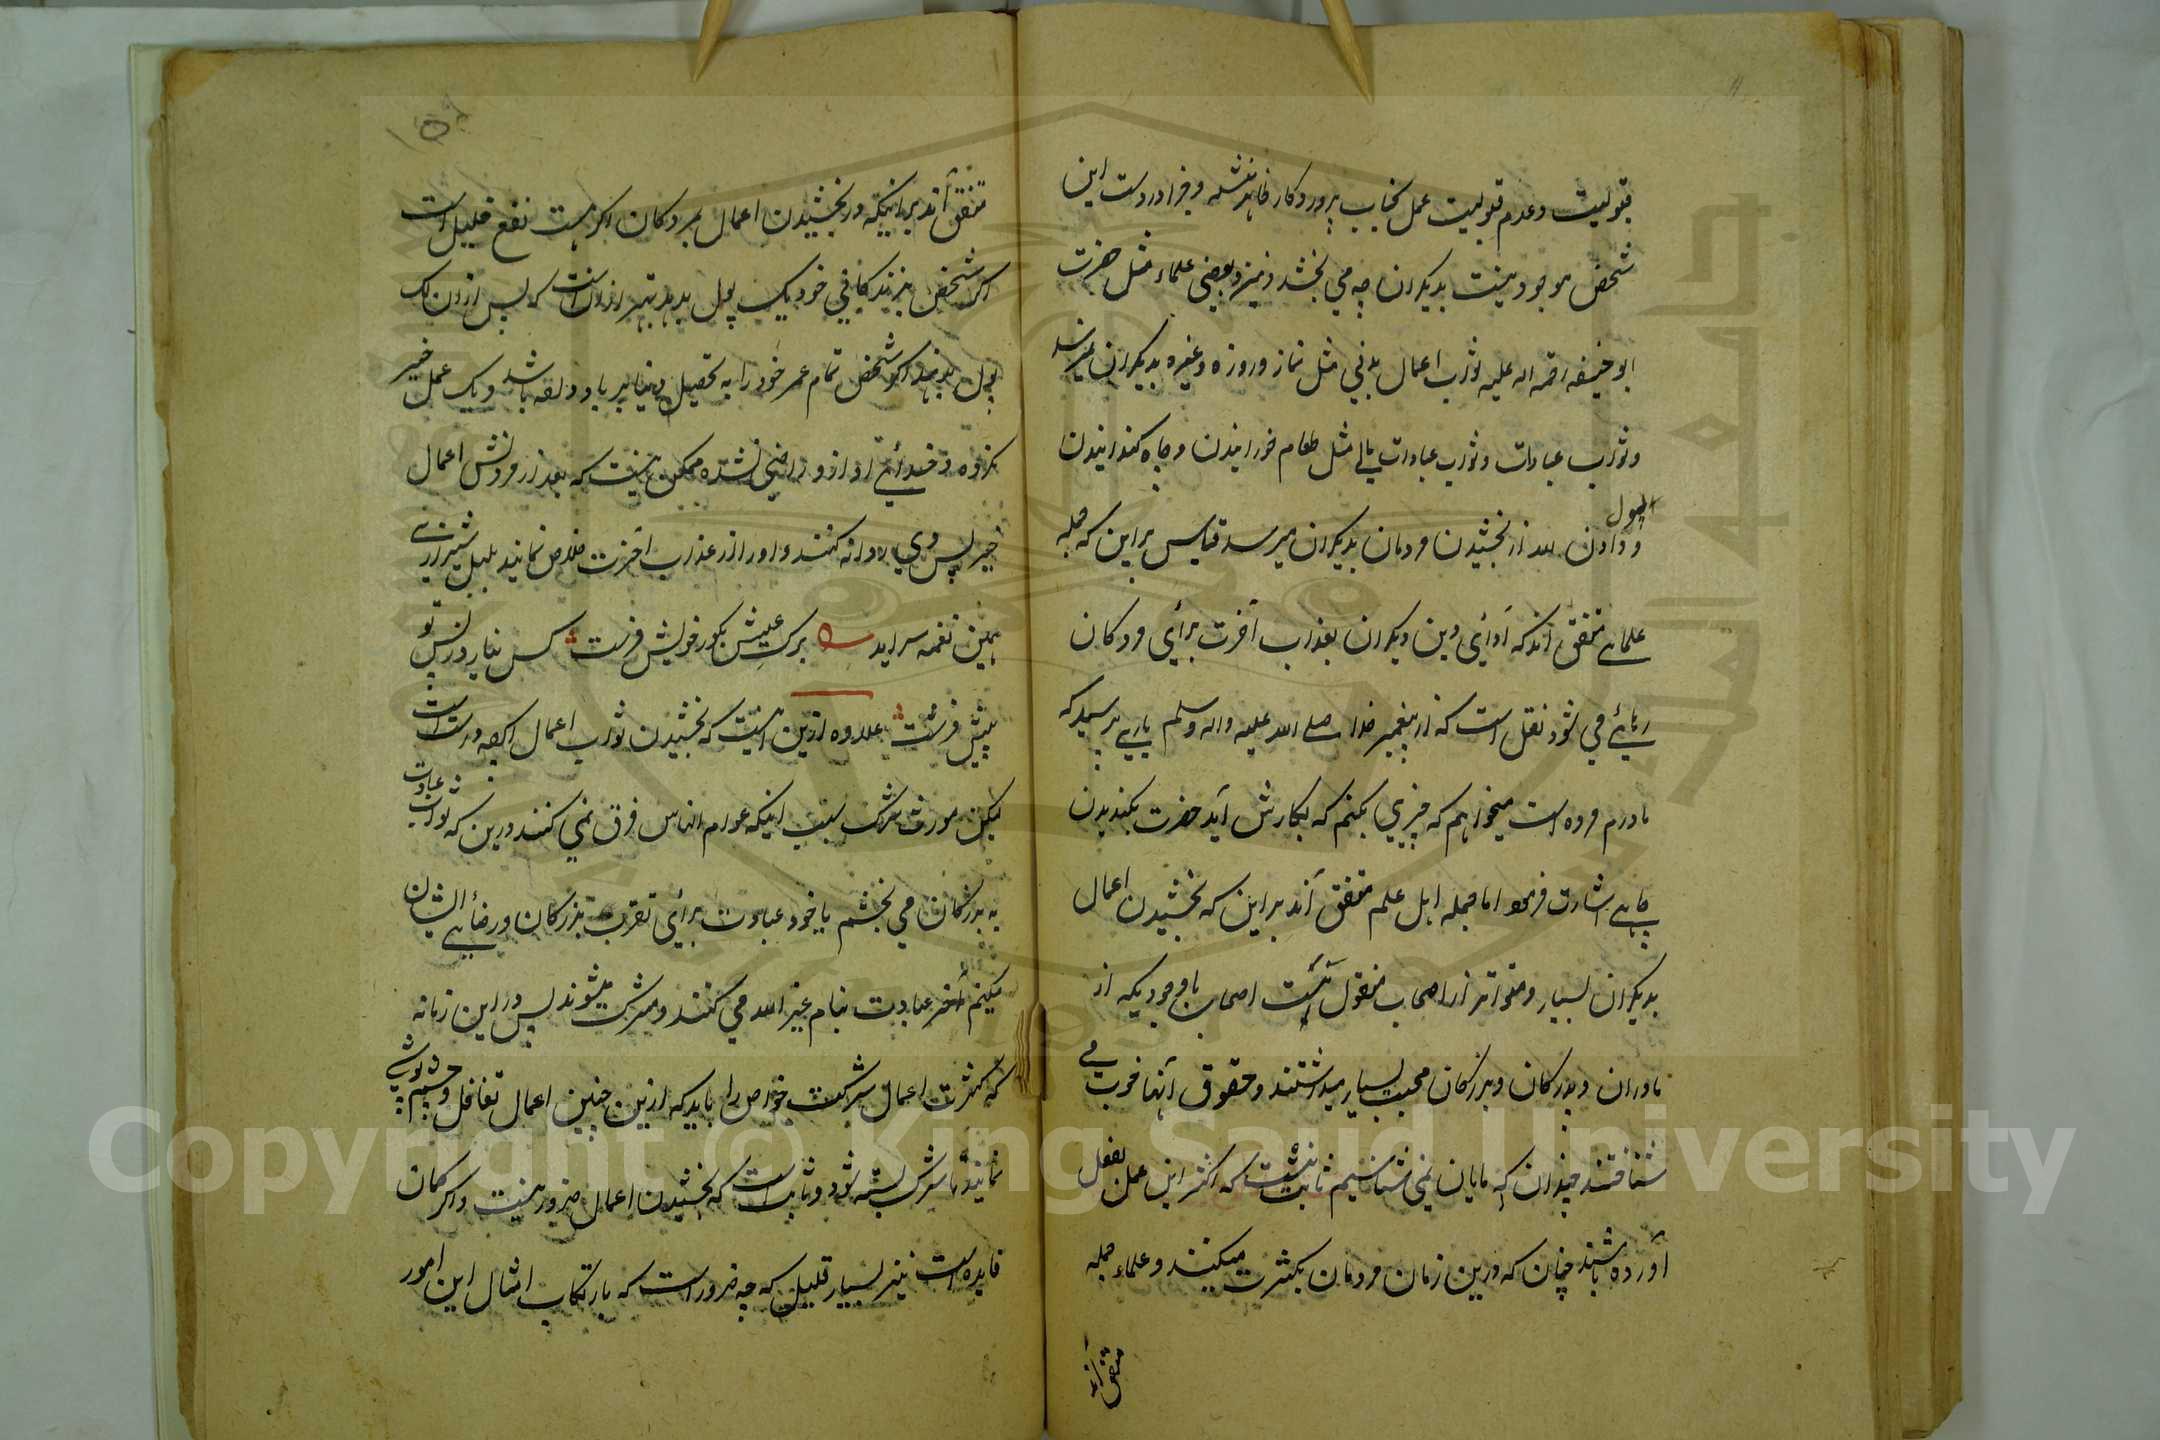 قبولیت و عدم قبولیت عمل بجناب پروردکار ظاهر نشده و فرا در دست این
شخص موجود نیست بدیکران چه می بخشد و نیز بعضی علماء مثل حضرت
ابو حنیفه رحمه الله علیه ثواب اعمال بدنی مثل نماز و روزه و غیره بدیکران نمیرسد
و ثواب عبادات و ثواب عبادات مالی مثل طعام خورانیدن و چاه کندانیدن
و دادن لله از بخشیدن مردمان بدیکران میرسد قیاس بر این که جمله
اموال
علمای متفق اند که ادای دین دیکران بعذاب آخرت برای مردکان
رهائی می شود نقل است که از پیغمبر خدا صلی الله علیه و اله و سلم یاری پرسید که
مادرم مرده است میخواهم که چیزی بکنم که بکارش آید حضرت بکندیدن
چاهی اشارت فرمود اما جمله اهل علم متفق اند بر این که بخشیدن اعمال
بدیکران بسیار و متواتر از اصحاب منقول نیست اصحاب باوجودیکه از
مادران و پدرکان و بزرکان محبت بسیار میداشتند و حقوق آنها خوب می
شناختند چندان که مایان نمی شناسیم ثابت نیست که اکثر این عمل بفعل
آورده باشند چنان که درین زمان مردمان بکثرت میکنند و علماء جمله
متفق اند
متفق اند بر اینکه در بخشیدن اعمال بمردکان اکر هست نفع قلیل است
اکر شخص بزندکانی خود یک پول بدهد بهتر ازان است که پس ازان لک
پول بدهند اکر شخص تمام عمر خود را به تحصیل دنیا برباد داده باشد و یک عمل خیر
نکرده و خدای از او راضی نشده ممکن نیست که بعد از مردنش اعمال
خیر پس وی روانه کنند و او را از عذاب آخرت خلاص نمایند بلبل شیرازی
همین نغمه سراید برک عیش بکور خویش فرست کس نیارد ز پس تو
پیش فرست علاوه ازین اینست که بخشیدن ثواب اعمال اکرچه درست است
لیکن مورث شرک بسبب اینکه عوام الناس فرق نمی کنند درین که ثواب عبادت
به بزرکان می بخشم یا خود عبادت برای تقرب بزرکان و رضای ایشان
میکنم آخر عبادت بنام غیر الله می کنند و مشرک میشوند پس در این زمانه
که کثرت اعمال شرکیست خواص را باید که ازین چنین اعمال تغافل و چشم پوشی
نمایند تا شرک بسته شود و ثابت است که بخشیدن اعمال ضرور نیست و اکر کمان
فایده است نیز بسیار قلیل که چه ضرور است که بارتکاب امثال این امور
Copyright © King Saud University